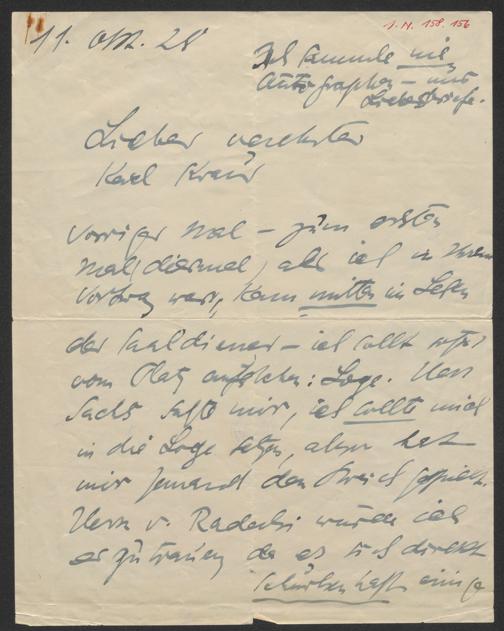 J.N. 158.156
11. Okt. 28
Ich sammle nie
Autographen – nur
Liebesbriefe.
Lieber verehrter
Karl Kraus
voriges Mal – zum ersten
Mal diesmal, als ich in Ihrem
Vortrag war, kam mitten im Lesen
der Saaldiener – ich sollt sofort
vom Platz aufstehen: Loge. Herr
Sachs sagte mir, ich sollte mich
in die Loge setzen, aber hat
mir jemand den Streich gespielt.
Herrn v. Radecki würde ich
es zutrauen, da es sich direkt
schurkenhaft